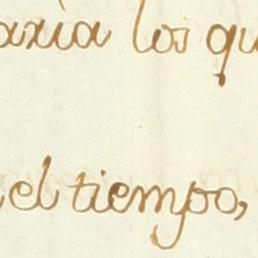 axia los qu
el tiempo,